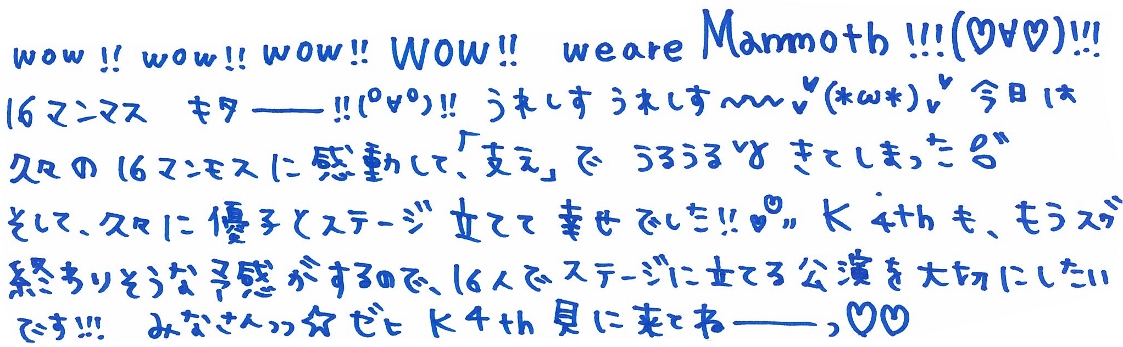 wow!! wow!! wow!! WOW!! we are Mammoth!!!(♡∀♡)!!!
16マンマス キター——!!(°∀°)!! うれしす うれしす〜〜〜♥(*ω*)♥ 今日は
久々の16マンモスに感動して、「支え」で うるうる きてしまった
そして、久々に優子とステージ立てて幸せでした!!♥♡" K 4thも、もうスグ
終わりそうな予感がするので、16人でステージに立てる公演を大切にしたい
です!!! みなさんっっ☆ゼヒ K4th 見に来てね——っ♡♡